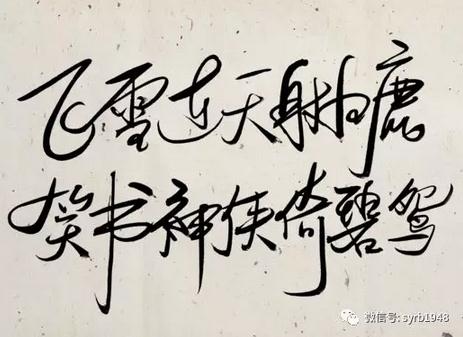 飞雪连天射白鹿
笑书神侠倚碧鸳
微信号: syrb1948